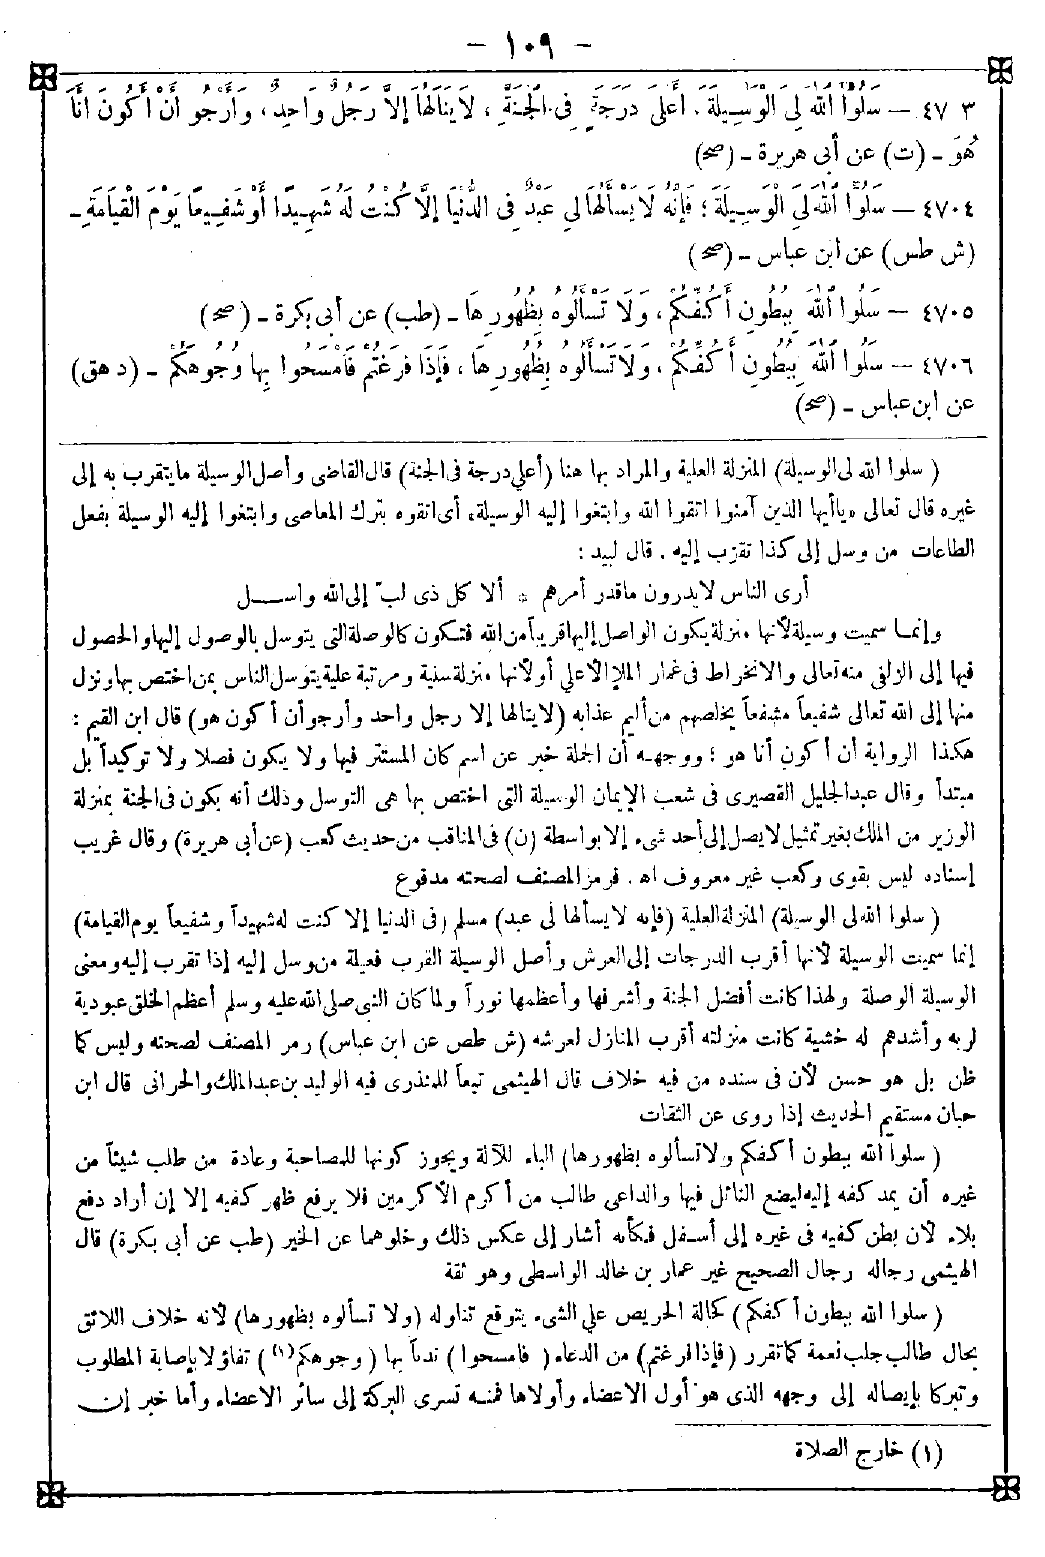 - ١٠٩ -
٤٧٠٣ - سَلُوا اللهَ لِيَ الْوَسِيلَةَ، أَعْلَى دَرَجَةٍ فِى الْجَنَّةِ، لَا يَنَالُهَا إِلَّا رَجُلٌ وَاحِدٌ، وَأَرْجُو أَنْ أَكُونَ أَنَا
هُوَ - (ت) عن أبى هريرة - (صح)
٤٧٠٤ - سَلُوا اللهَ لِيَ الْوَسِيلَةَ؛ فَإِنَّهُ لَا يَسْأَلُهَا لِى عَبْدٌ فِى الدُّنْيَا إِلَّا كُنْتُ لَهُ شَهِيدًا أَوْ شَفِيعًا يَوْمَ الْقِيَامَةِ -
(ش طس) عن ابن عباس - (صح)
٤٧٠٥ - سَلُوا اللهَ بِبُطُونِ أَكُفِّكُمْ، وَلَا تَسْأَلُوهُ بِظُهُورِهَا - (طب) عن أبى بكرة - (صح)
٤٧٠٦ - سَلُوا اللهَ بِبُطُونِ أَكُفِّكُمْ، وَلَا تَسْأَلُوهُ بِظُهُورِهَا، فَإِذَا فَرَغْتُمْ فَامْسَحُوا بِهَا وُجُوهَكُمْ - (د هق)
عن ابن عباس - (صح)
(سلوا الله لى الوسيلة) المنزلة العلية والمراد بها هنا (أعلى درجة فى الجنة) قال القاضى وأصل الوسيلة ما يتقرب به إلى
غيره قال تعالى «يا أيها الذين آمنوا اتقوا الله وابتغوا إليه الوسيلة» أى اتقوه بترك المعاصى وابتغوا إليه الوسيلة بفعل
الطاعات من وسل إلى كذا تقرب إليه. قال لبيد:
أرى الناس لا يدرون ما قدر أمرهم * ألا كل ذى لبّ إلى الله واسل
وإنما سميت وسيلة لأنها منزلة يكون الواصل إليها قريباً من الله فتكون كالوصلة التى يتوسل بالوصول إليها والحصول
فيها إلى الزلفى منه تعالى والانخراط فى غمار الملإ الأعلى أو لأنها منزلة سنية ومرتبة علية يتوسل الناس بمن اختص بها ونزل
منها إلى الله تعالى شفيعاً مشفعاً يخلصهم من أليم عذابه (لا ينالها إلا رجل واحد وأرجو أن أكون هو) قال ابن القيم:
هكذا الرواية أن أكون أنا هو؛ ووجهه أن الجملة خبر عن اسم كان المستتر فيها ولا يكون فصلا ولا توكيداً بل
مبتدأ وقال عبد الجليل القصيرى فى شعب الإيمان الوسيلة التى اختص بها هى التوسل وذلك أنه يكون فى الجنة بمنزلة
الوزير من الملك بغير تمثيل لا يصل إلى أحد شىء إلا بواسطة (ن) فى المناقب من حديث كعب (عن أبى هريرة) وقال غريب
إسناده ليس بقوى وكعب غير معروف اه. فرمز المصنف لصحته مدفوع
(سلوا الله لى الوسيلة) المنزلة العلية (فإنه لا يسألها لى عبد) مسلم (فى الدنيا إلا كنت له شهيداً وشفيعاً يوم القيامة)
إنما سميت الوسيلة لأنها أقرب الدرجات إلى العرش وأصل الوسيلة القرب فعيلة من وسل إليه إذا تقرب إليه ومعنى
الوسيلة الوصلة ولهذا كانت أفضل الجنة وأشرفها وأعظمها نوراً ولما كان النبى صلى الله عليه وسلم أعظم الخلق عبودية
لربه وأشدهم له خشية كانت منزلته أقرب المنازل لعرشه (ش طص عن ابن عباس) رمز المصنف لصحته وليس كما
ظن بل هو حسن لأن فى سنده من فيه خلاف قال الهيثمى تبعاً للمنذرى فيه الوليد بن عبد الملك والحرانى قال ابن
حبان مستقيم الحديث إذا روى عن الثقات
(سلوا الله ببطون أكفكم ولا تسألوه بظهورها) الباء للآلة ويجوز كونها للمصاحبة وعادة من طلب شيئاً من
غيره أن يمد كفه إليه ليضع النائل فيها والداعى طالب من أكرم الأكرمين فلا يرفع ظهر كفيه إلا إن أراد دفع
بلاء لأن بطن كفيه فى غيره إلى أسفل فكأنه أشار إلى عكس ذلك وخلوهما عن الخير (طب عن أبى بكرة) قال
الهيثمى رجاله رجال الصحيح غير عمار بن خالد الواسطى وهو ثقة
(سلوا الله ببطون أكفكم) كحالة الحريص على الشىء يتوقع تناوله (ولا تسألوه بظهورها) لأنه خلاف اللائق
بحال طالب جلب نعمة كما تقرر (فإذا فرغتم) من الدعاء (فامسحوا) ندباً بها (وجوهكم(١)) تفاؤلا بإصابة المطلوب
وتبركا بإيصاله إلى وجهه الذى هو أول الأعضاء وأولاها فمنه تسرى البركة إلى سائر الأعضاء وأما خبر إن
(١) خارج الصلاة